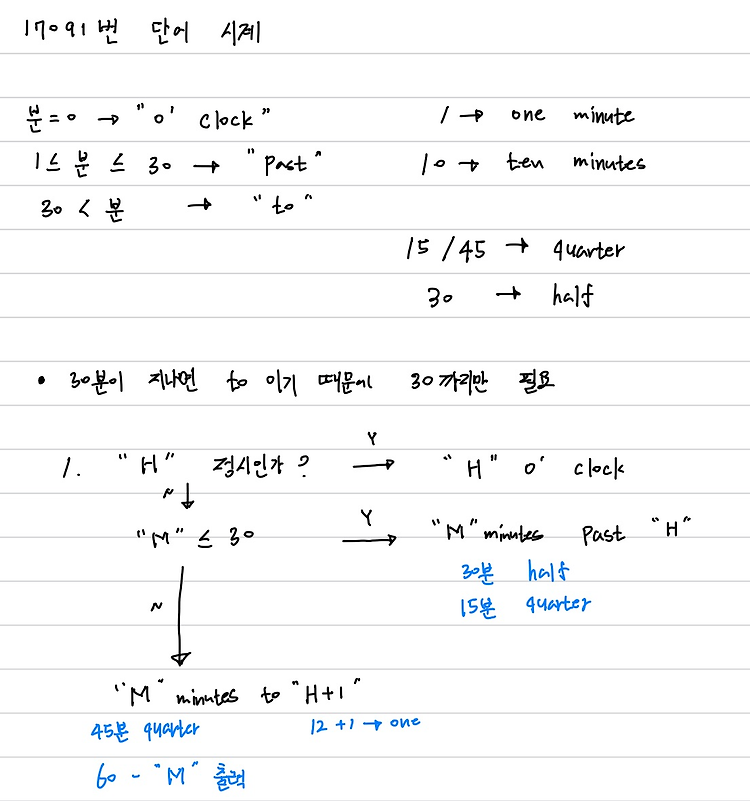 17091번 단어 시계
분=0 → "o' clock"
1 → one minute
1≤ 분 ≤ 30 → "past"
10 → ten minutes
30 < 분 → "to"
15 / 45 → quarter
30 → half
• 30분이 지나면 to 이기 때문에 30까지만 필요
1. "H" 정시인가? Y → "H" o' clock
N ↓
"M" ≤ 30 Y → "M" minutes past "H"
30분 half
15분 quarter
N ↓
"M" minutes to "H+1"
45분 quarter 12 +1 → one
60 - "M" 출력